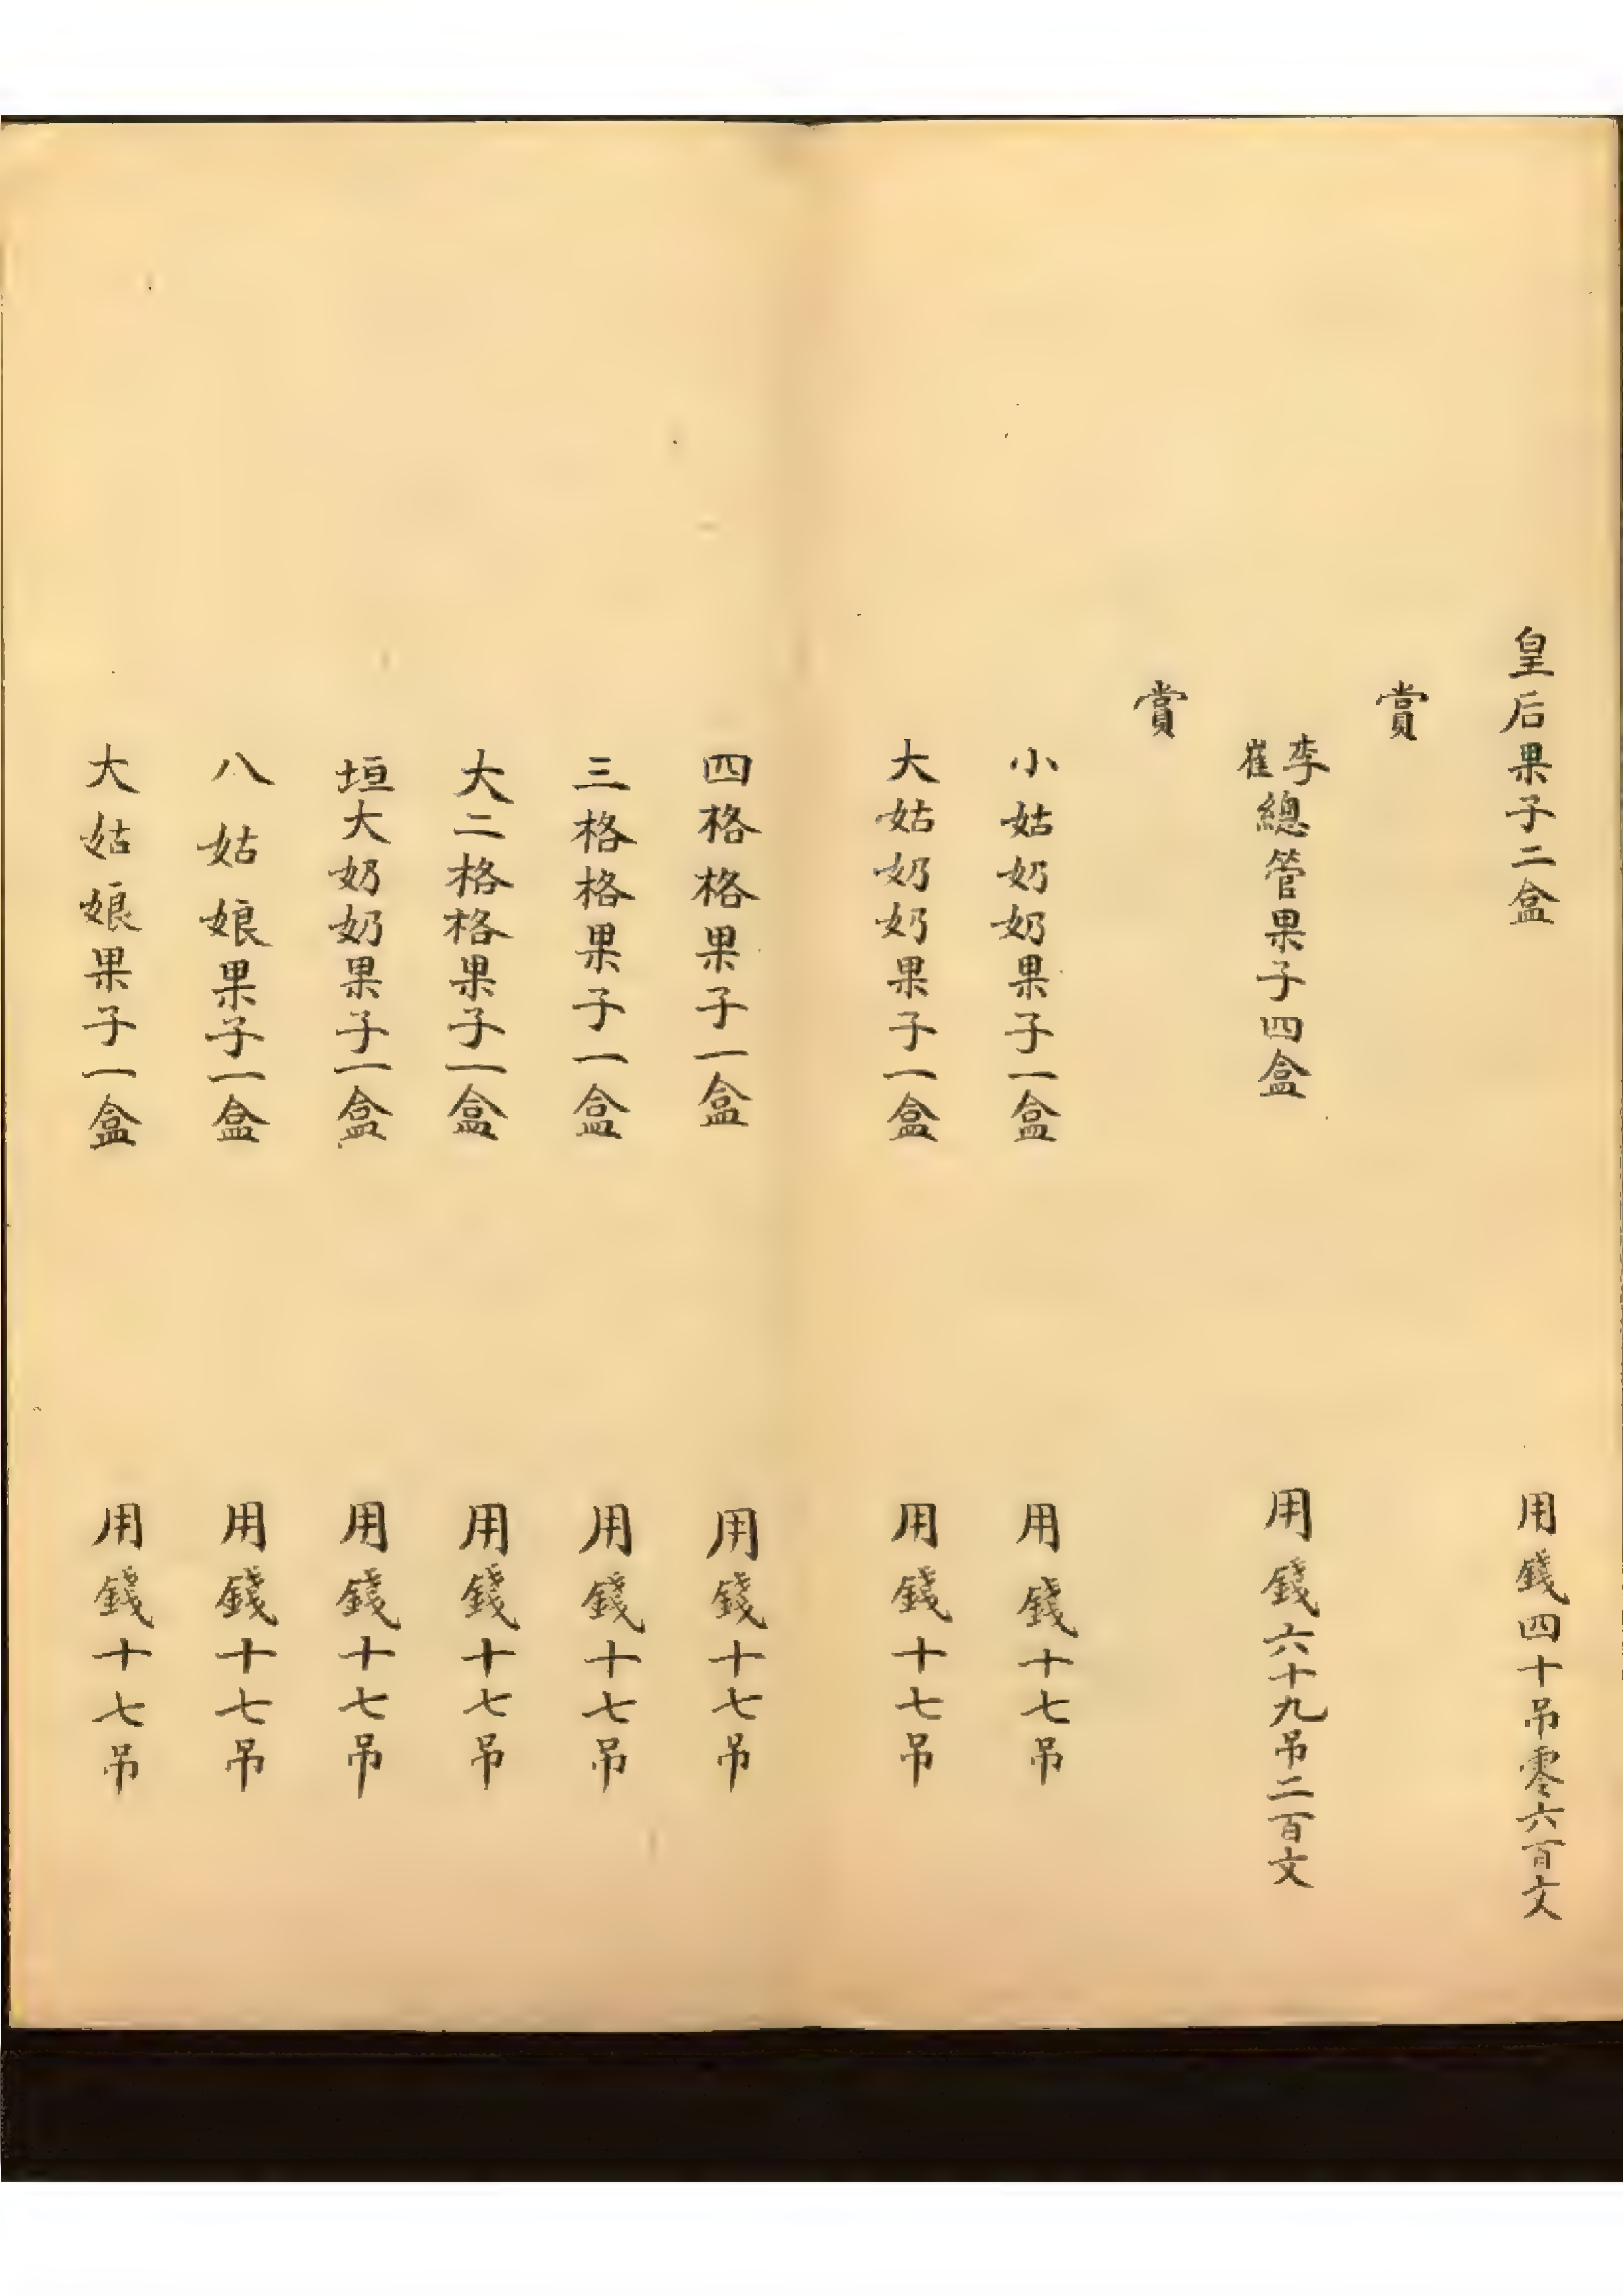 皇后果子二盒 用錢四十吊零六百文
賞
李崔總管果子四盒 用錢六十九吊二百文
賞
小姑奶奶果子一盒 用錢十七吊
大姑奶奶果子一盒 用錢十七吊
四格格果子一盒 用錢十七吊
三格格果子一盒 用錢十七吊
大二格格果子一盒 用錢十七吊
垣大奶奶果子一盒 用錢十七吊
八姑娘果子一盒 用錢十七吊
大姑娘果子一盒 用錢十七吊